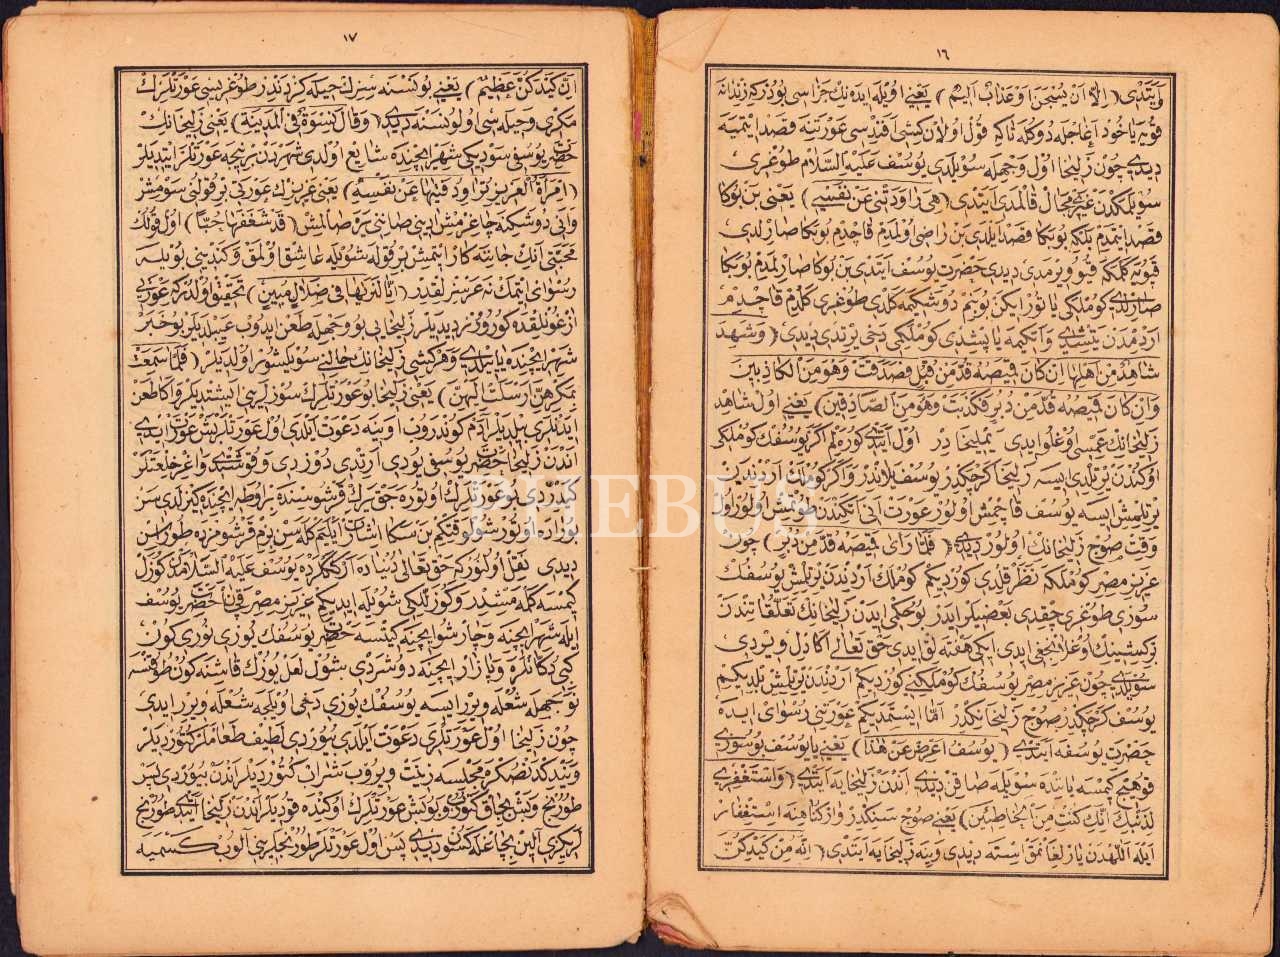 ١٦
وايتدى (الا ان يسجن او عذاب اليم) يعنى اويله ايده نك جزاسى بودركه زندانه
قويه ياخود آغاجله دوكيله تاكه قول اولان كيشى افندسى عورتنه قصد ايتميه
ديدى چون زليخا اول وجهله سويلدى يوسف عليه السلام طوغرى
سويلمكدن غيرى مجال قالمدى ايتدى (هى راودتنى عن نفسى) يعنى بن بوكا
قصد ايتمدم بلكه بو بكا قصد ايلدى بن راضى اولمدم قاچدم بو بكا صارلدى
قپويه كلدكه قپو ويرمدى ديدى حضرت يوسف ايتدى بن بوكا صارلمدم بو بكا
صارلدى كوملكى يا نور ايكن بوينم دوشكيمه كلدى طوغرى كلدم قاچدم
اردمدن يتشدى واتكمه ياپشدى كوملكى دخى يرتدى ديدى (وشهد
شاهد من اهلها ان كان قميصه قد من قبل فصدقت وهو من الكاذبين
وان كان قميصه قد من دبر فكذبت وهو من الصادقين) يعنى اول شاهد
زليخانك عمسى اوغلو ايدى يمليخا در اول ايتدى كوره لم اكر يوسفك كوملكى
اوكندن يرتلدى ايسه زليخا كرچكدر يوسف يلاندر واكر كوملك اردندن
يرتلمش ايسه يوسف قاچمش اولور عورت انى اتكندن طوتمش اولور اول
وقت صوچ زليخانك اولور ديدى (فلما راى قميصه قد من دبر) چون
عزيز مصر كوملكه نظر قلدى كورديكم كوملك اردندن يرتلمش يوسفك
سوزى طوغرى چقدى بعضيلر ايدر بو حكمى ايدن زليخانك تعلقاتندن
بر كيشينك اوغلانجغى ايدى ايكى هفته لق ايدى حق تعالى اكا دل ويردى
سويلدى چون عزيز مصر يوسفك كوملككنى كورديكم اردندن يرتلمش بلديكيم
يوسف كرچكدر صوچ زليخانكدر اما ايستمديكم عورتنى رسواى ايده
حضرت يوسفه ايتدى (يوسف اعرض عن هذا) يعنى يا يوسف بو سوزى
قو هيچ كمسه ياننده سويله مه صاقن ديدى اندن زليخايه ايتدى (واستغفرى
لذنبك انك كنت من الخاطئين) يعنى صوچ سنكدر وار كناهنه استغفار
ايله اللهدن يارلغانمق استه ديدى وينه زليخايه ايتدى (انه من كيدكن
١٧
ان كيدكن عظيم) يعنى بو نسنه سزك حيله كزدندر طوغريسى عورتلرك
مكرى وحيله سى اولو نسنه در ديدى (وقال نسوة فى المدينة) يعنى زليخانك
حضرت يوسفى سوديكى شهر ايچنده شايع اولدى شهردن بر نيچه عورتلر ايتديلر
(امراة العزيز تراود فتيها عن نفسه) يعنى عزيزك عورتى بر قولنى سومش
وانى دوشكنه چاغرمش ايمش (قد شغفها حبا) اول قولك
محبتى آنك جاننه كار ايتمش بر قوله شويله عاشق اولمق وكنديسى بويله
رسواى ايتمك نه عرسزلقدر (انا لنريها فى ضلال مبين) تحقيق اولدركه عورتى
ازغونلقده كوررز ديديلر زليخايى بو وجهله طعن ايدوب عيبلديلر بو خبر
شهر ايچنده يايلدى وهر كشى زليخانك حالنى سويلشور اولديلر (فلما سمعت
بمكرهن ارسلت اليهن) يعنى زليخا بو عورتلرك سوزلرينى ايشتدى اكا طعن
ايتدكلرى بلدى آدم كوندروب اوينه دعوت ايلدى اول عورتلر بش عورت ايدى
اندن زليخا حضرت يوسفى يودى ارتدى دوزدى وقوشتدى واغر خلعتلر
كيدردى بو عورتلرك اوتوره جق يرلرك قرشوسنده بر اوطه ايچنده كيزلدى سن
بوراده اوتور شول وقتكم بن سكا اشارت ايليم كله سن بزم قرشومزده طوراسن
ديدى نقل اولنوركه حق تعالى دنياده آز كمسه يوسف عليه السلامدن كوزل
كيمسه كلمه مشدر وكوزللكى شويله ايديكم عزيز مصر قچن حضرت يوسف
ايله شهر ايچنه وچارشو ايچنه كيتسه حضرت يوسفك يوزى نورى كون
كبى دكانلره وبازار ايچنه دوشردى شول لعل يوزك قاشنه كون طوقنسه
نه وجهله شعله ويرر ايسه يوسفك يوزى دخى اويلجه شعله ويرر ايدى
چون زليخا اول عورتلرى دعوت ايلدى بيوردى لطيف طعاملر كتورديلر
وبتدكدنصكره مجلسه زينت ويروب شراب كتورديلر اندن بيوردى بش
طورنج وبش بچاق كتوردى وبو بش عورتلرك اوكنده قوديلر اندن زليخا ايتدى طورنج
لريكزى آلين بچاغله كسون ديدى پس اول عورتلر طورنجلرينى آلوب كسميه
PHEBUS